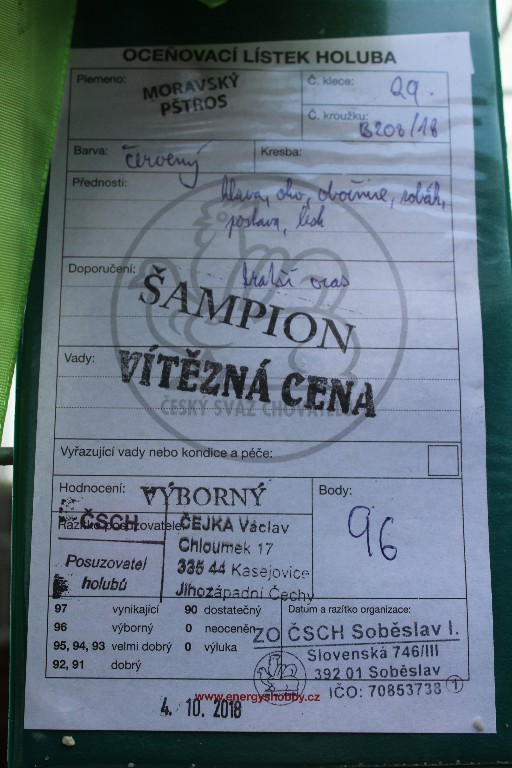 OCEŇOVACÍ LÍSTEK HOLUBA
Plemeno: MORAVSKÝ PŠTROS
Č. klece: 29.
Č. kroužku: B208/18
Barva: červený
Kresba:
Přednosti: hlava, oko, obočnice, zobák,
postava, lesk
Doporučení: kratší ocas
ŠAMPION
Vady:
VÍTĚZNÁ CENA
ČESKÝ SVAZ CHOVATELŮ
Vyřazující vady nebo kondice a péče:
Hodnocení: VÝBORNÝ
Body: 96
Razítko posuzovatele:
ČSCH
Posuzovatel
holubů
ČEJKA Václav
Chloumek 17
335 44 Kasejovice
Jihozápadní Čechy
97 vynikající 90 dostatečný
96 výborný 0 neoceněn
95, 94, 93 velmi dobrý 0 výluka
92, 91 dobrý
Datum a razítko organizace:
ZO ČSCH Soběslav I.
Slovenská 746/III
392 01 Soběslav
IČO: 70853738 1
www.energyshobby.cz
4. 10. 2018